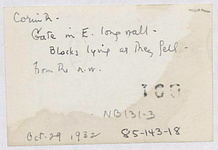 Corinth.
Gate in E. long wall.
Blocks lying as they fell.
from the n.w.
160
NB131-3
Oct. 29 1932 85-143-18